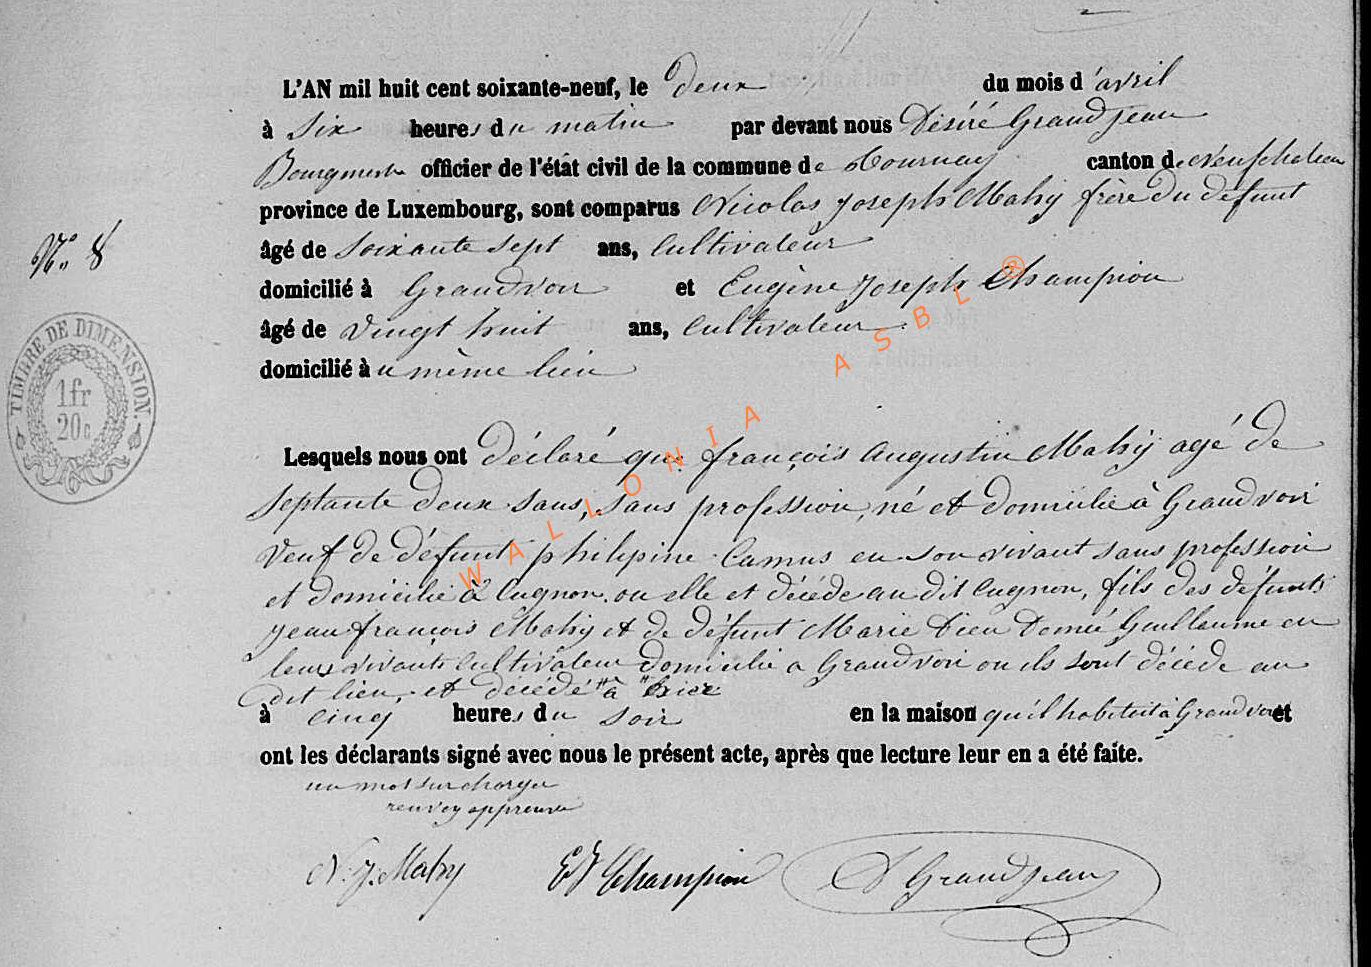 L'AN mil huit cent soixante-neuf, le deux du mois d'avril
à six heures du matin par devant nous Désiré Grandjean
Bourgmestre officier de l'état civil de la commune de Tournay canton de Neufchateau
province de Luxembourg, sont comparus Nicolas Joseph Mahy frère du défunt
âgé de soixante sept ans, Cultivateur
N° 8
domicilié à Grandvoir et Eugène Joseph Champion
âgé de vingt huit ans, Cultivateur
domicilié au même lieu
TIMBRE DE DIMENSION.
1fr
20c
WALLONIA ASBL ®
Lesquels nous ont déclaré que françois Augustin Mahy agé de
septante deux sans, sans profession, né et domicilié à Grandvoir
veuf de défunt philipine Camus en son vivant sans profession
et domicilié à Cugnon, ou elle et décédé au dit Cugnon, fils des défunts
Jean françois Mahy et de défunt Marie Dieu Donnée Guillaume en
leurs vivants Cultivateur domicilié a Grandvoir ou ils sont décédé au
dit lieu et décédé à hier
à cinq heures du soir en la maison qu'il habitait à Grandvoir et
ont les déclarants signé avec nous le présent acte, après que lecture leur en a été faite.
un mot surchargé
renvoy approuvé
N. J. Mahy EJ Champion D Grandjean